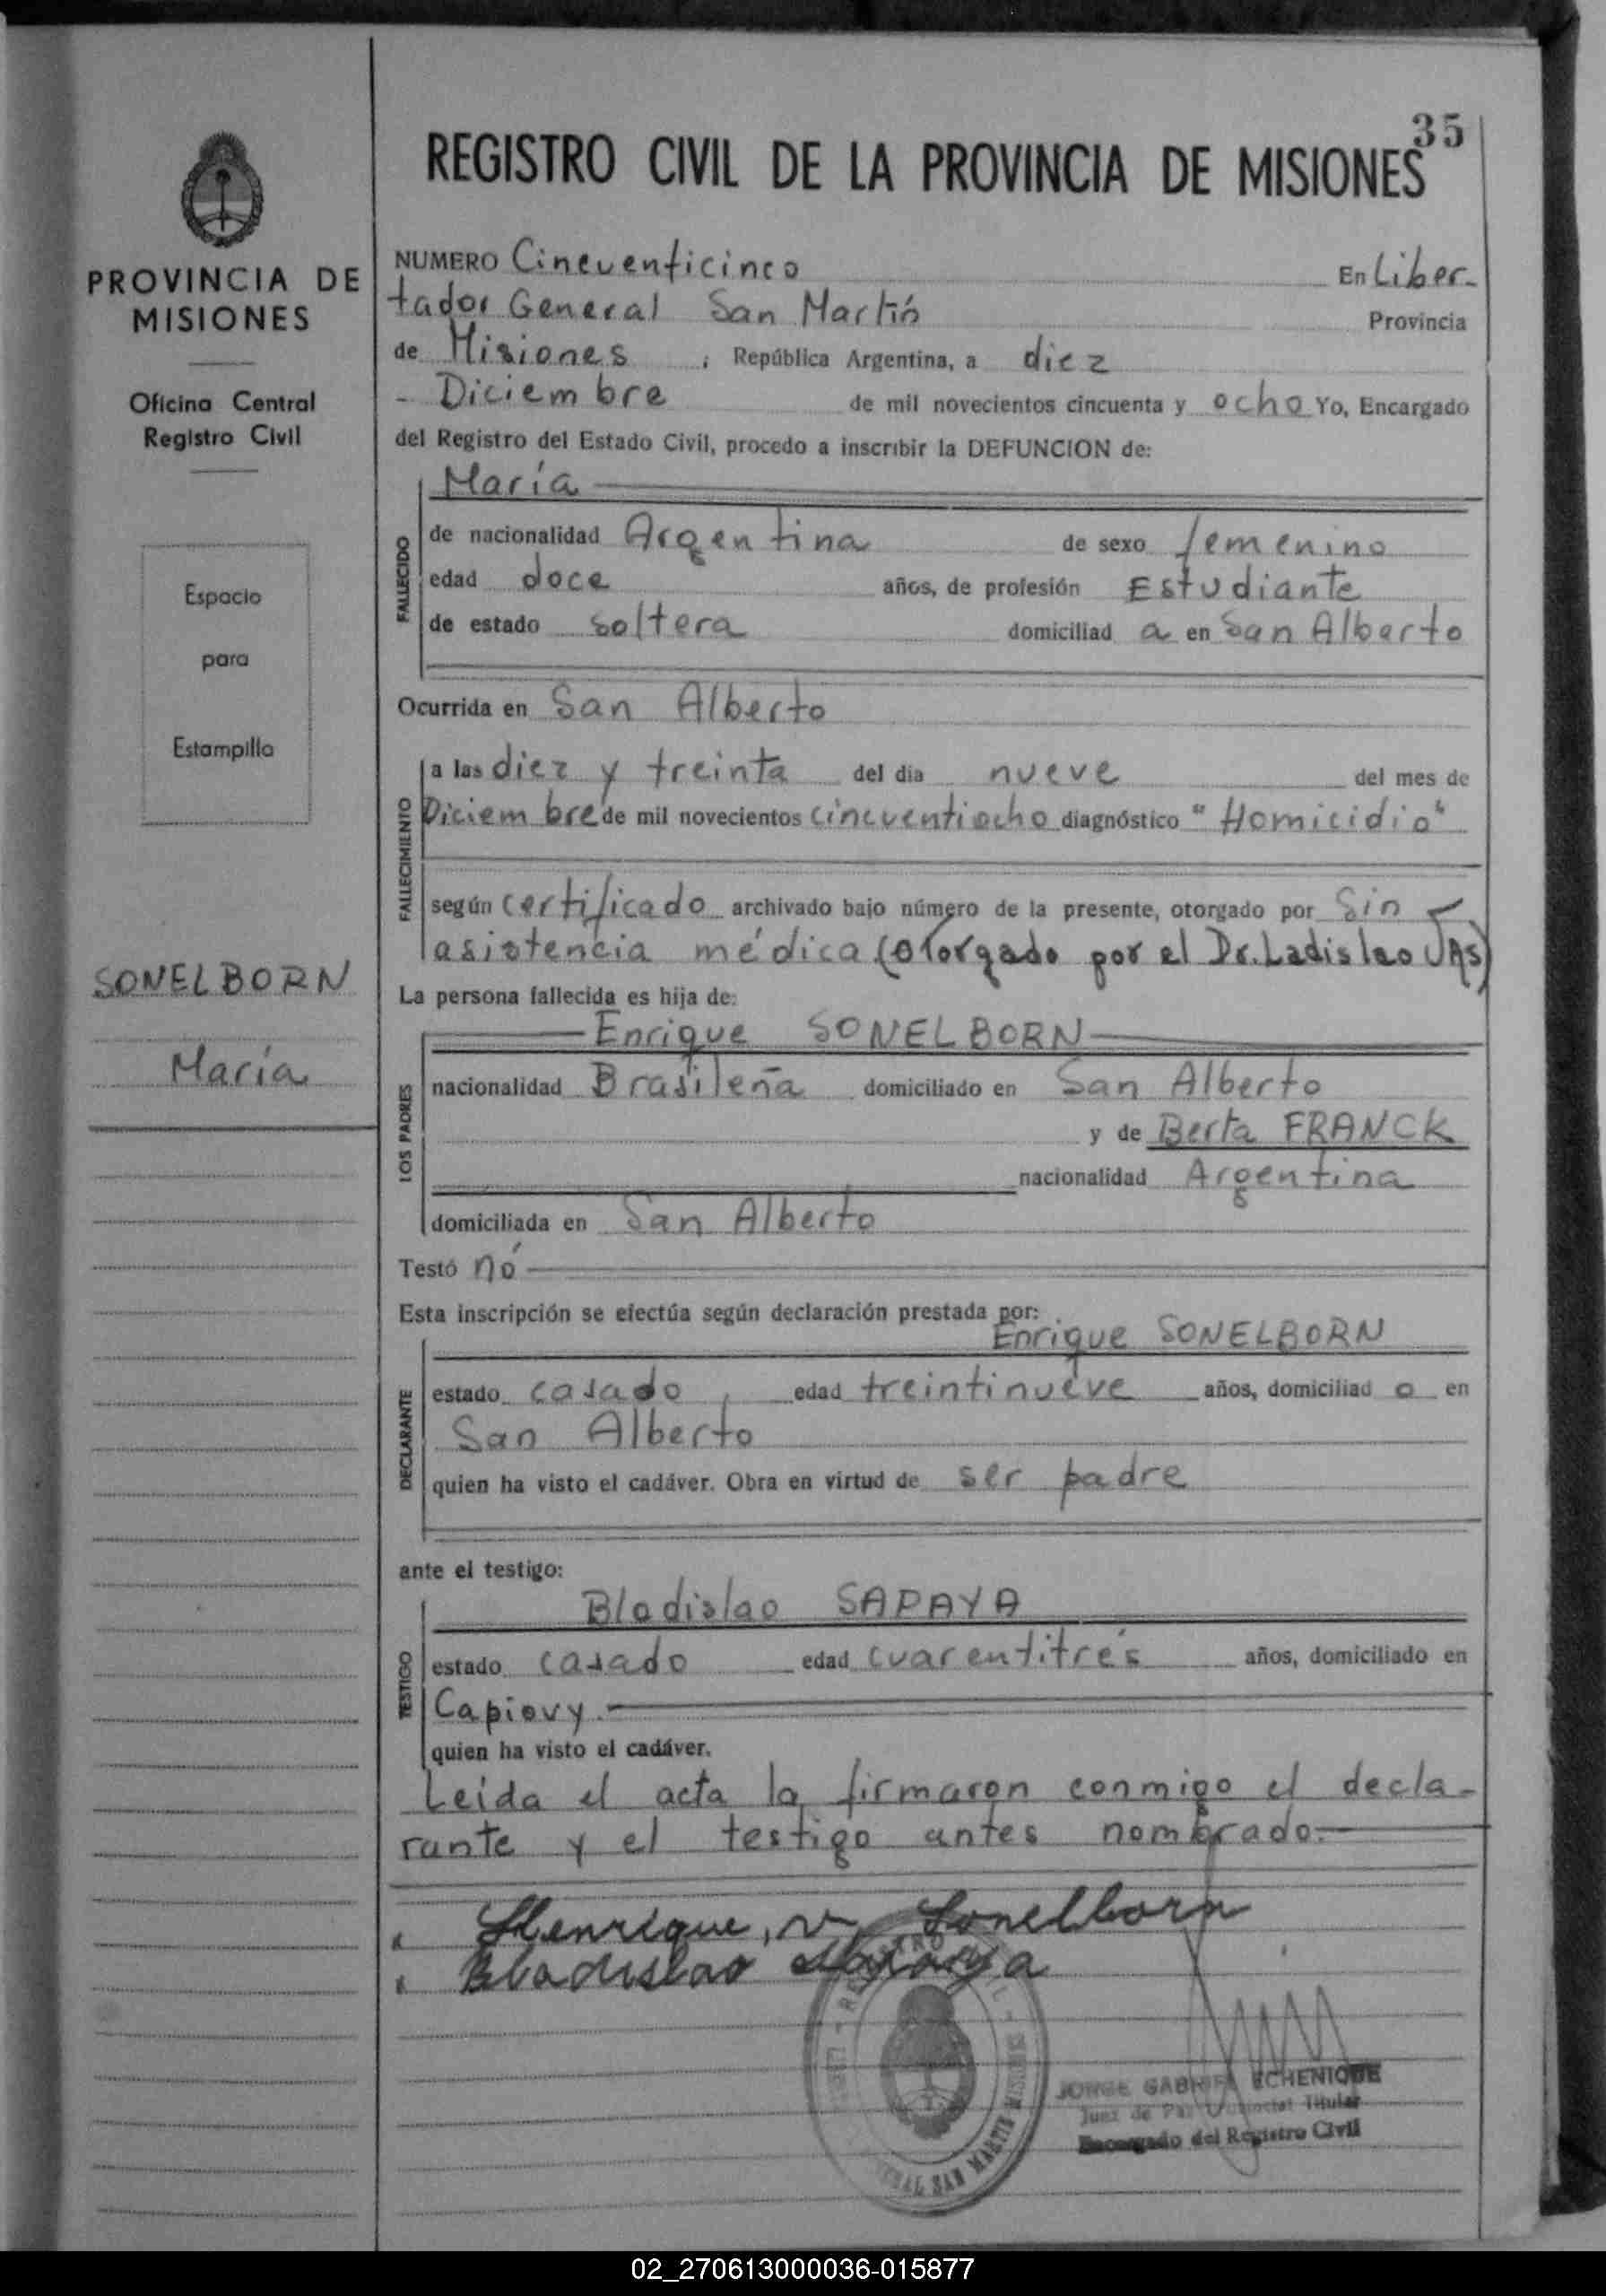 35
REGISTRO CIVIL DE LA PROVINCIA DE MISIONES
PROVINCIA DE
MISIONES
Oficina Central
Registro Civil
Espacio
para
Estampilla
SONELBORN
María
NUMERO Cincuenticinco En Liber-
tador General San Martín Provincia
de Misiones ; República Argentina, a diez
- Diciembre de mil novecientos cincuenta y ocho Yo, Encargado
del Registro del Estado Civil, procedo a inscribir la DEFUNCION de:
María
FALLECIDO
de nacionalidad Argentina de sexo femenino
edad doce años, de profesión Estudiante
de estado soltera domiciliad a en San Alberto
Ocurrida en San Alberto
FALLECIMIENTO
a las diez y treinta del dia nueve del mes de
Diciembre de mil novecientos cincuentiocho diagnóstico "Homicidio"
según certificado archivado bajo número de la presente, otorgado por Sin
asistencia médica (otorgado por el Dr. Ladislao
La persona fallecida es hija de:
LOS PADRES
Enrique SONELBORN
nacionalidad Brasileña domiciliado en San Alberto
y de Berta FRANCK
nacionalidad Argentina
domiciliada en San Alberto
Testó nó
Esta inscripción se efectúa según declaración prestada por:
DECLARANTE
Enrique SONELBORN
estado casado, edad treintinueve años, domiciliad o en
San Alberto
quien ha visto el cadáver. Obra en virtud de ser padre
ante el testigo:
TESTIGO
Bladislao SAPAYA
estado casado edad cuarentitrés años, domiciliado en
Capiovy.
quien ha visto el cadáver.
Leída el acta la firmaron conmigo el decla-
rante y el testigo antes nombrado.
Henrique, v Sonelborn
Bladislao
JORGE GABRIEL ECHENIQUE
Juez de Paz Titular
Encargado del Registro Civil
02_270613000036-015877